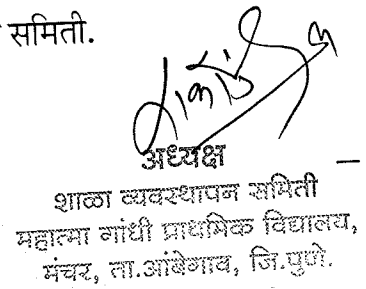 समिती.
अध्यक्ष
शाळा व्यवस्थापन समिती
महात्मा गांधी प्राथमिक विद्यालय,
मंचर, ता.आंबेगाव, जि.पुणे.